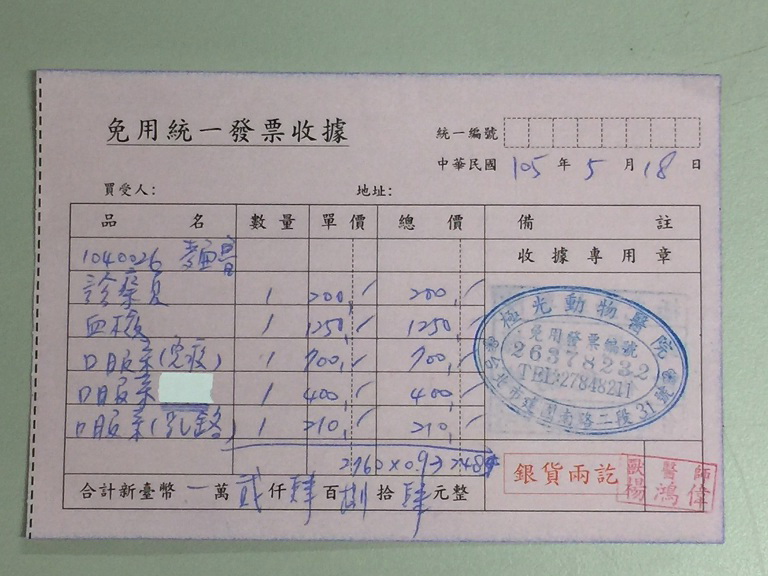 免用統一發票收據
統一編號
中華民國 105 年 5 月 18 日
買受人: 地址:
品名 數量 單價 總價 備註
1040026 收據專用章
診療費 1 200 200
血檢 1 1250 1250
口服藥(免疫) 1 700 700
口服藥 1 400 400
口服藥(乳鉻) 1 210 210
2760×0.9
極光動物醫院
免用發票編號
26378232
TEL:27848211
台北市建國南路二段31號
合計新臺幣 一萬 貳仟 肆百 捌拾 肆元整
銀貨兩訖
獸醫師
楊鴻偉